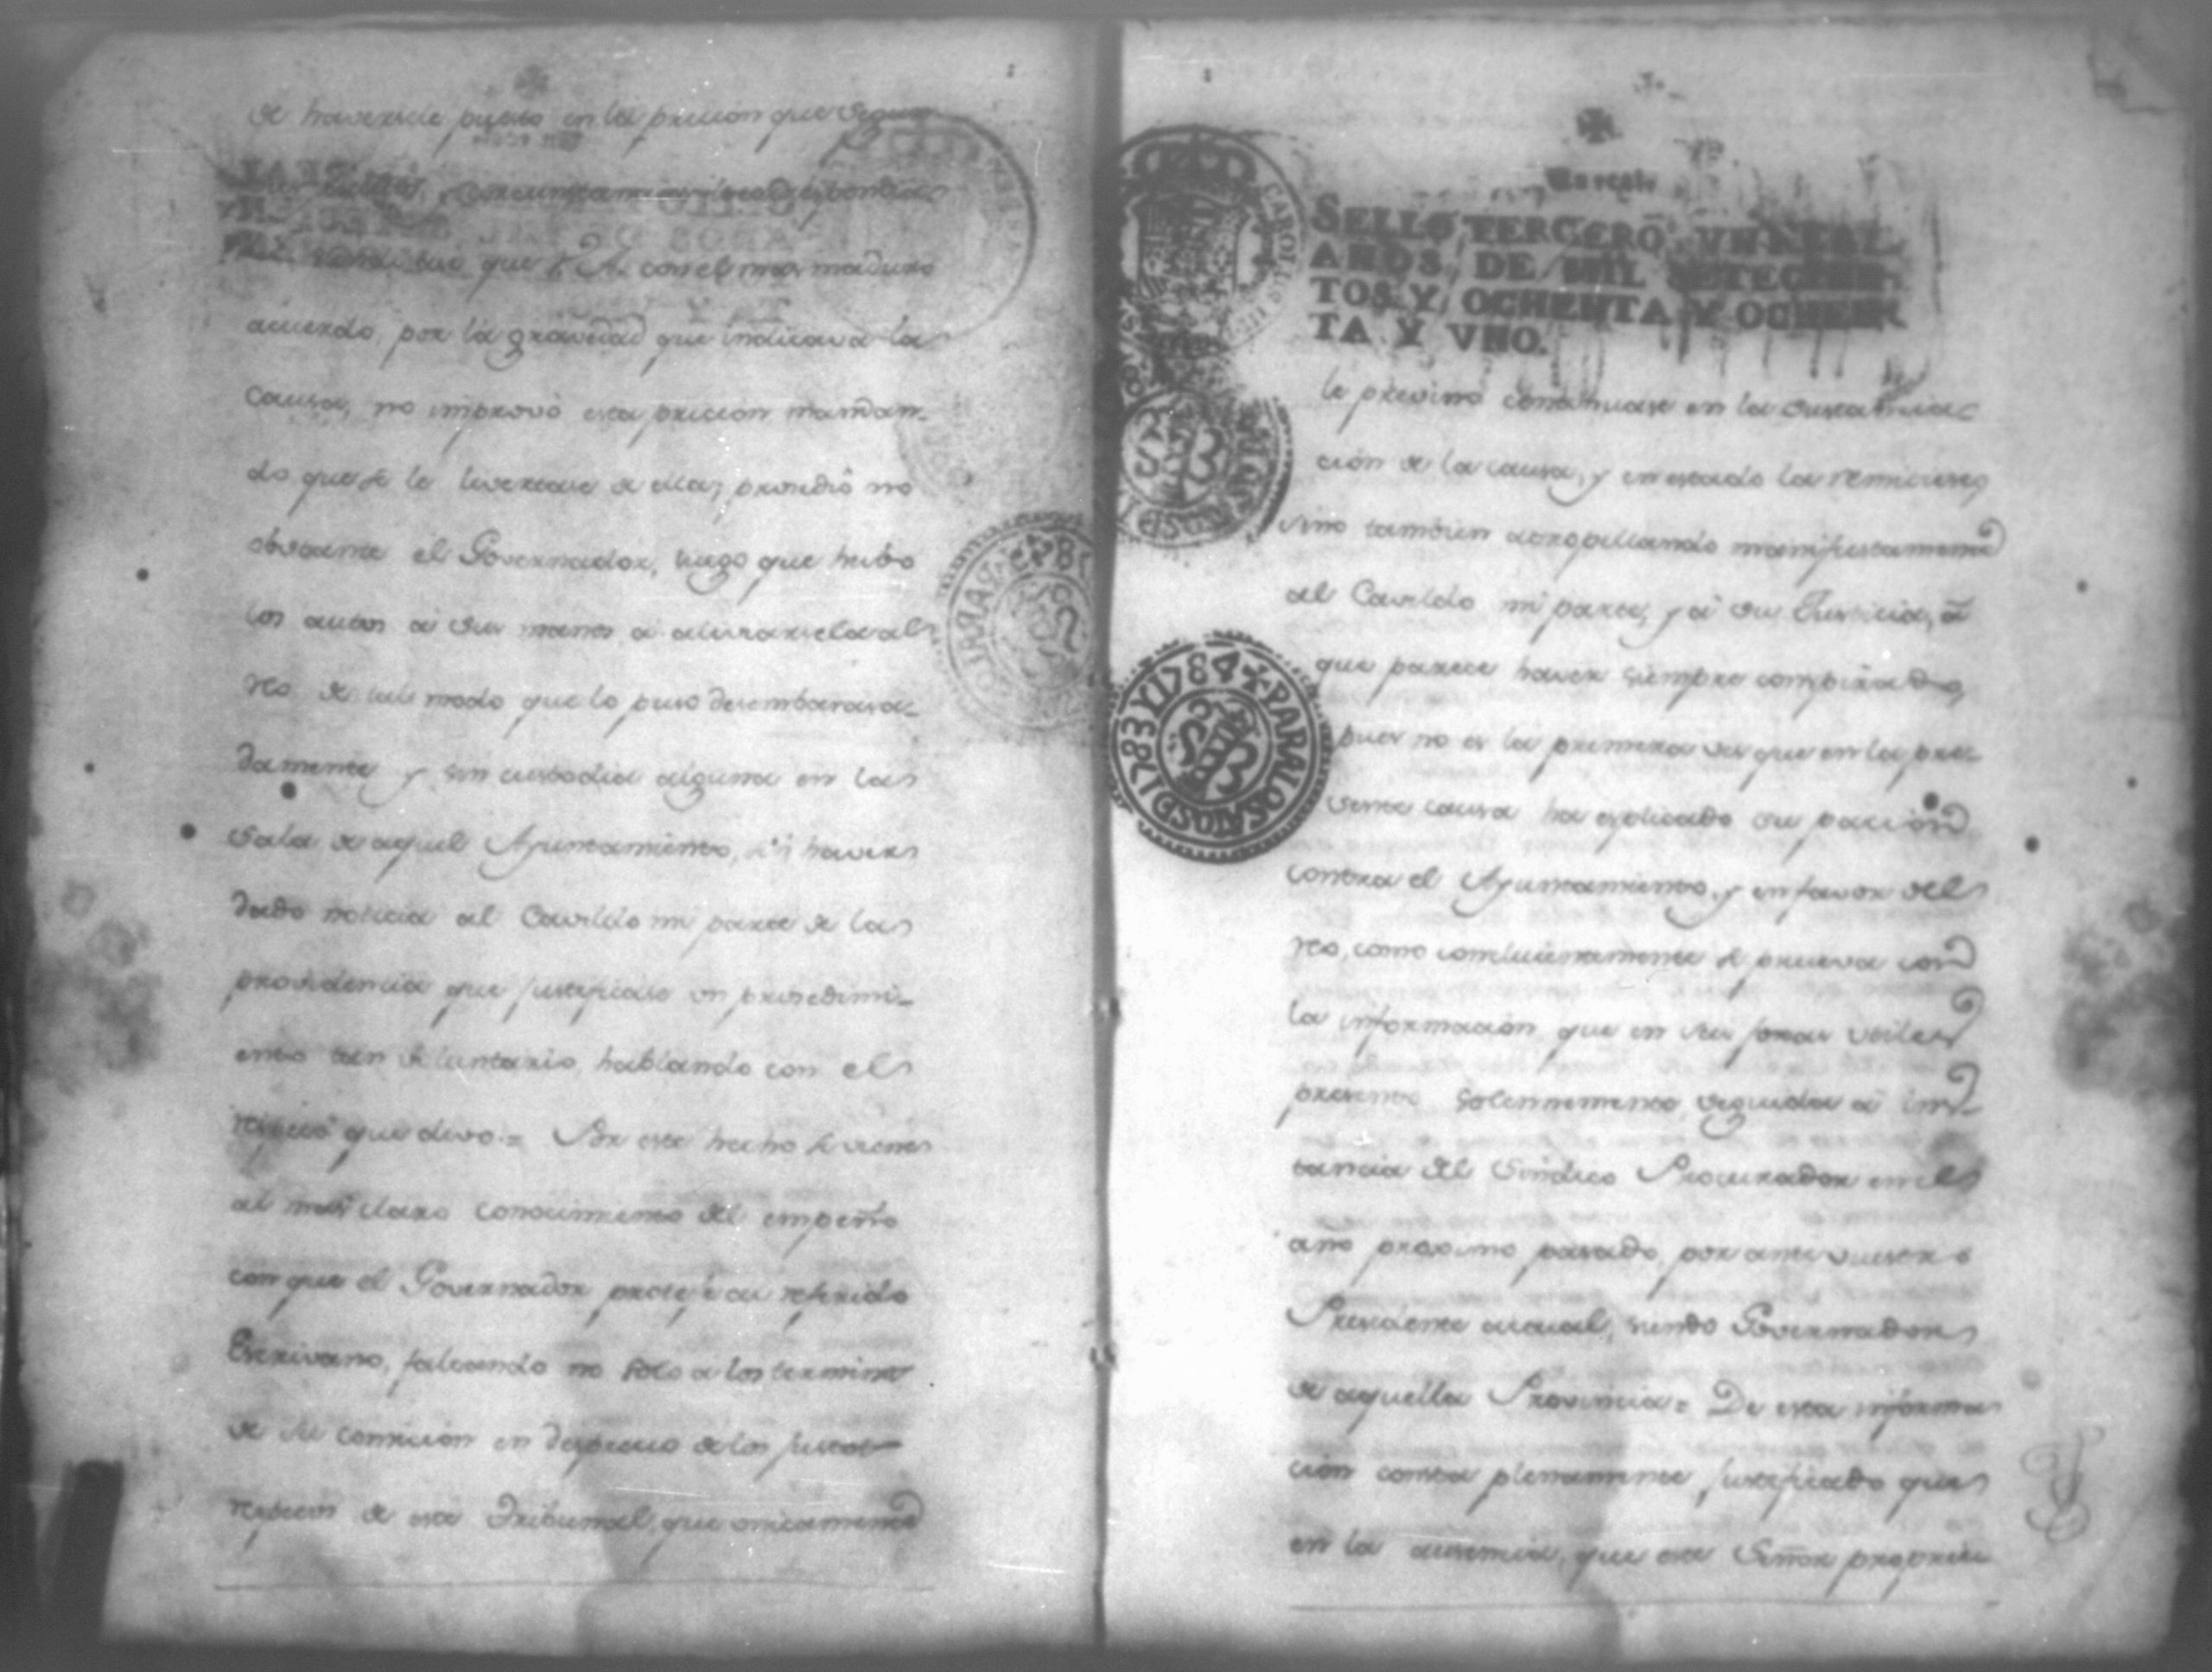 de haversele puesto en la pricion que segun
circunstancias
que V. A. con el mas maduro
acuerdo, por la gravedad que indicava la
causa, no improvó esta pricion mandan-
do que se le livertase de ella, procedió no
obstante el Governador, luego que hubo
los autos á sus manos á aliviarsela al
reo de tal modo que lo puso desembarasa-
damente y sin custodia alguna en la
Sala de aquel Ayuntamiento, sin haver
dado noticia al Cavildo mi parte de la
providencia que justificase un procedimi-
ento tan voluntario, hablando con el
respeto que devo = Por este hecho se viene
al mas claro conocimiento del empeño
con que el Governador proteje su referido
Escrivano, faltando no solo a los terminos
de su comicion en desprecio de los justos
respetos de este Tribunal, que unicamente
Un real
SELLO TERCERO, VN REAL,
AÑOS DE MIL SETECIEN-
TOS Y OCHENTA Y OCHEN-
TA Y VNO.
CAROLUS III
PARA LOS AÑOS D 1783 Y 1784
le previno continuase en la sustancia-
ción de la causa, y en estado la remitiese,
sino tambien atropellando manifiestamente
al Cavildo mi parte, y á su Justicia, á
que parece haver siempre conspirado,
pues no es la primera vez que en la pre-
sente causa ha esplicado su pacion
contra el Ayuntamiento, y en favor del
reo, como concluientemente se prueva con
la informacion que en seis foxas utiles
presento solemnemente, seguida á ins-
tancia del Sindico Procurador en el
año proximo pasado, por ante vuestro
Presidente actual, siendo Governador
de aquella Provincia = De esta informa
ción consta plenamente justificado que
en la ausencia, que este Señor proprie